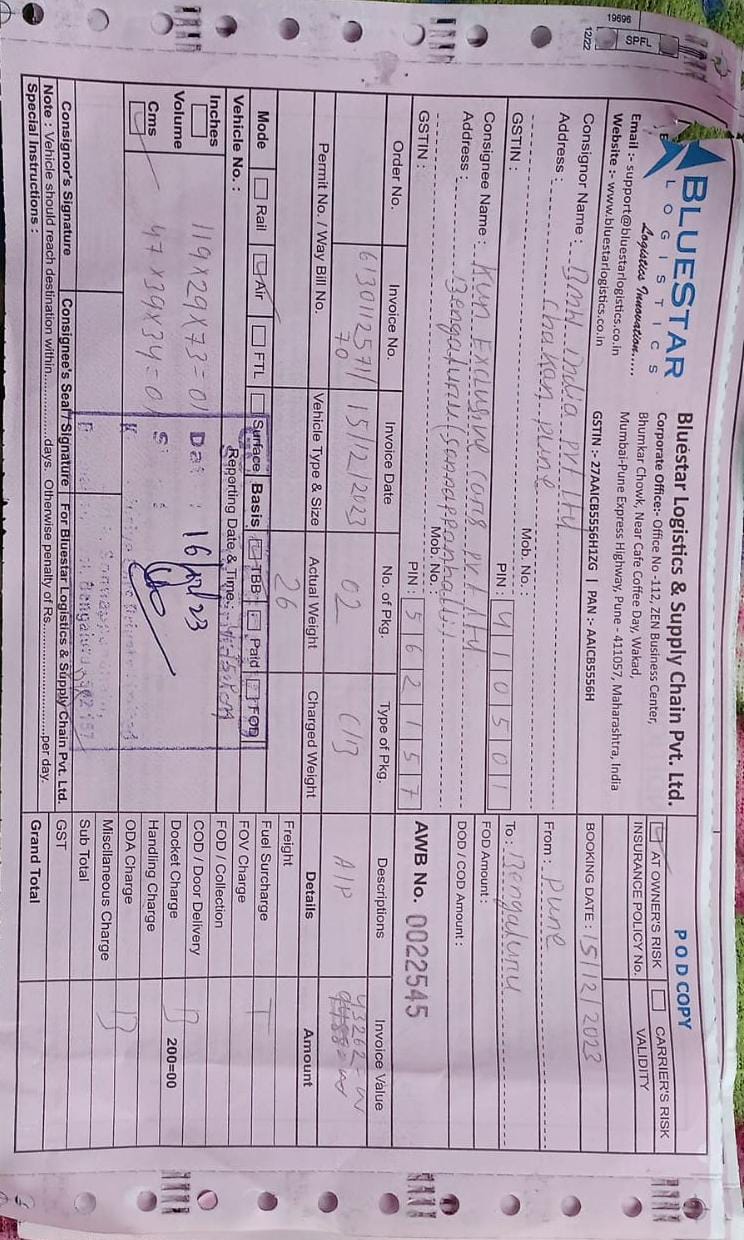 BLUESTAR
LOGISTICS
Logistics Innovation.....
Email :- support@bluestarlogistics.co.in
Website :- www.bluestarlogistics.co.in
Bluestar Logistics & Supply Chain Pvt. Ltd.
Corporate Office:- Office No -112, ZEN Business Center,
Bhumkar Chowk, Near Cafe Coffee Day, Wakad,
Mumbai-Pune Express Highway, Pune - 411057, Maharashtra, India
GSTIN :- 27AAICB5556H1ZG | PAN :- AAICB5556H
POD COPY
AT OWNER'S RISK CARRIER'S RISK
INSURANCE POLICY No. VALIDITY
BOOKING DATE : 15/12/2023
From : Pune
To : Bengaluru
FOD Amount :
DOD / COD Amount :
AWB No. 0022545
Consignor Name : BMW India Pvt Ltd
Address : Chakan pune
Mob. No. :
GSTIN : PIN : 410501
Consignee Name : Kun Exclusive Cars pvt ltd
Address : Bengaluru (sonnappanhalli)
Mob. No. :
GSTIN : PIN : 562157
Order No. Invoice No. Invoice Date No. of Pkg. Type of Pkg. Descriptions Invoice Value
6130112571/ 15/12/2023 02 C/B A/P 43262=
70
Permit No. / Way Bill No. Vehicle Type & Size Actual Weight Charged Weight
26
Mode Rail Air FTL Surface Basis TBB Paid FOD
Vehicle No. : Reporting Date & Time :
Inches
Volume
Cms
119X29X73=01
47X39X34=01
Dat : 16/12/23
Sonnappanahalli,
Bengaluru 562 157
Details Amount
Freight
Fuel Surcharge
FOV Charge
FOD / Collection
COD / Door Delivery
Docket Charge 200=00
Handling Charge
ODA Charge
Miscllaneous Charge
Sub Total
GST
Grand Total
T
B
B
Consignor's Signature Consignee's Seal / Signature For Bluestar Logistics & Supply Chain Pvt. Ltd.
Note : Vehicle should reach destination within...............days. Otherwise penalty of Rs..........................per day.
Special Instructions :
19696
SPFL
12/22